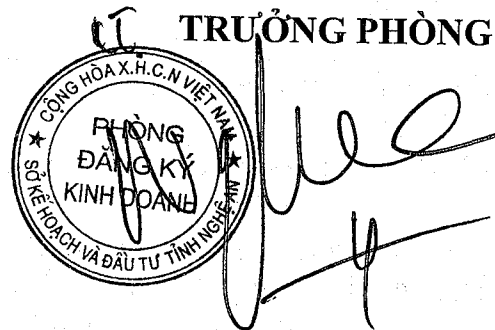 TRƯỞNG PHÒNG
CỘNG HÒA X.H.C.N VIỆT NAM
PHÒNG
ĐĂNG KÝ
KINH DOANH
SỞ KẾ HOẠCH VÀ ĐẦU TƯ TỈNH NGHỆ AN